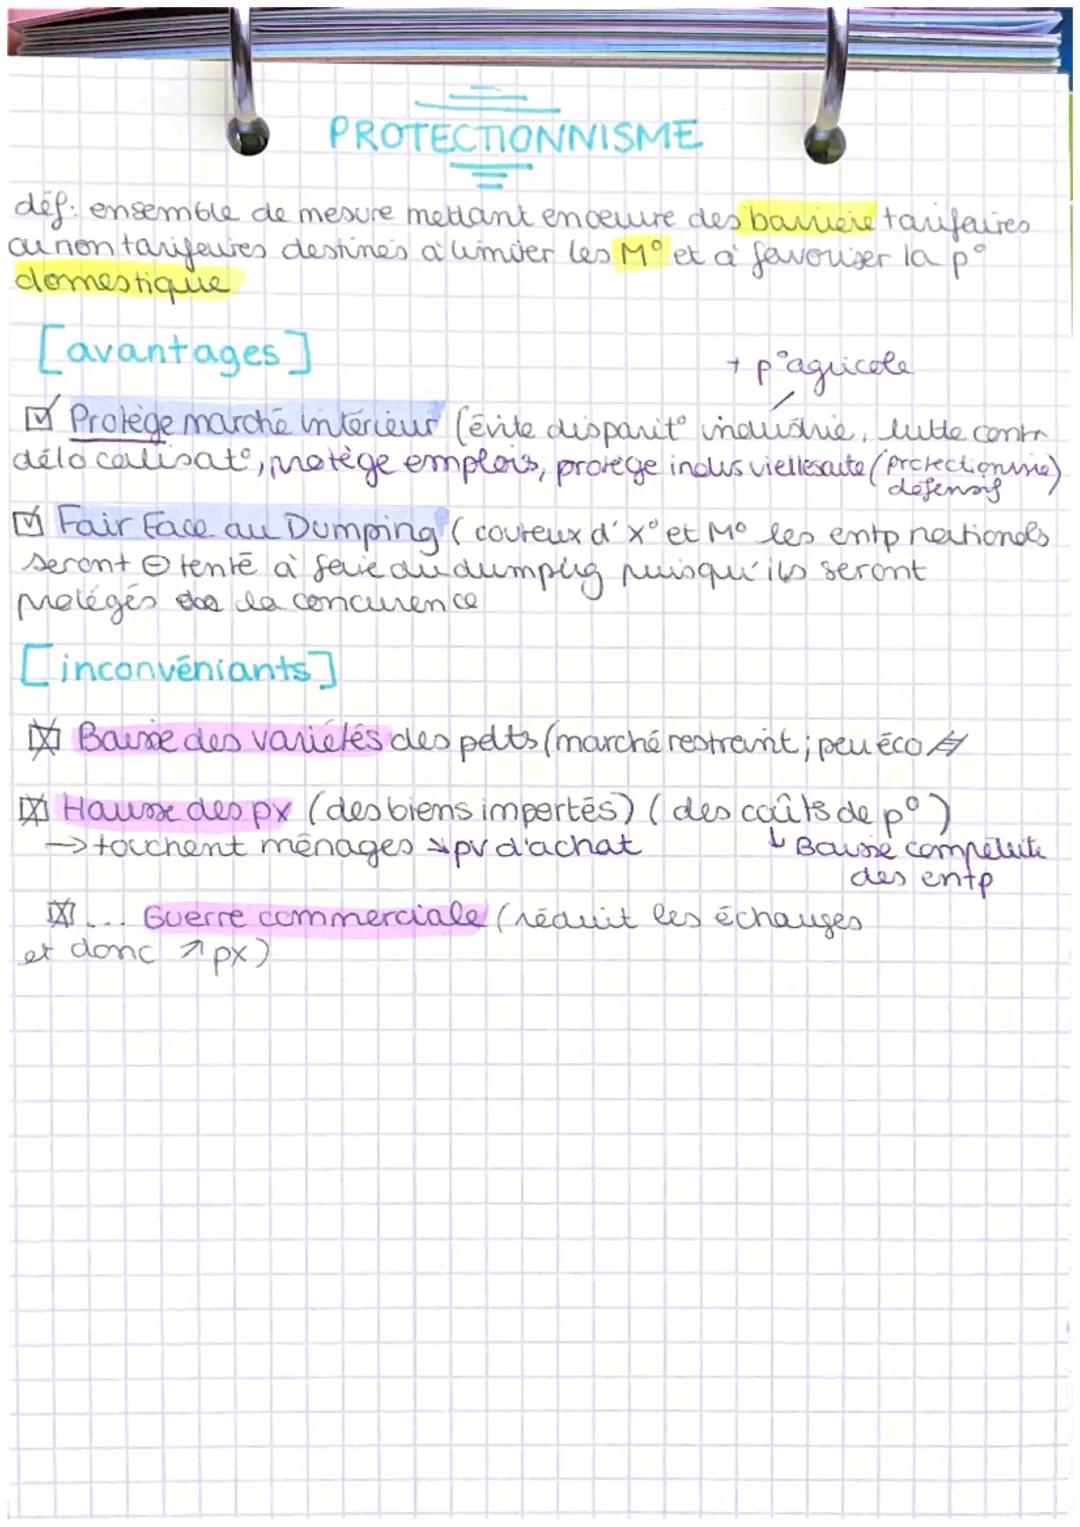 PROTECTIONNISME
déf: ensemble de mesure mettant en oeuvre des barrière tarifaires
ou non tarifaires destinés à limiter les M° et à favoriser la p°
domestique
[avantages]
+ p° agricole
☑ Protège marché intérieur (évite disparit° industrie, lutte contr
délocalisat°, protège emplois, protège indus viellesante (protectionisme)
défensif
☑ Fair Face au Dumping (couteux d'X° et M° les entp nationals
seront ⊖ tenté à faire du dumping puisqu'ils seront
protégés de la concurence
[inconvéniants]
☒ Baisse des variétés des pdts (marché restreint; peu éco
☒ Hausse des px (des biens importés) (des coûts de p°)
→ touchent ménages ↘ pv d'achat ↳ Baisse compétitit
des entp
☒ ... Guerre commerciale (réduit les échanges
et donc ↗ px)